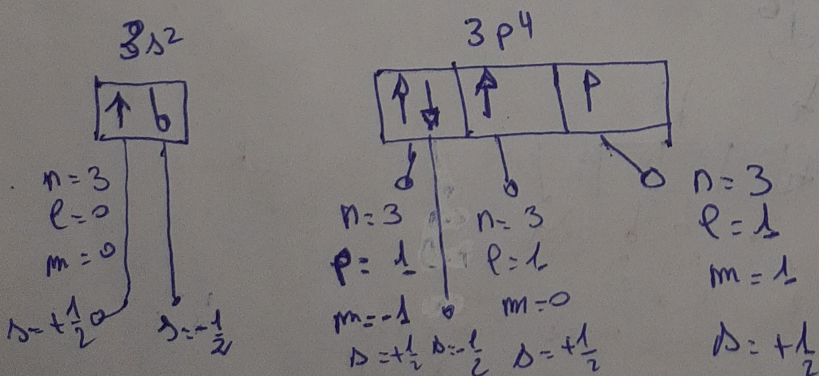 3s² 3p⁴
↑ ↓ ↑ ↓ ↑ ↑
n = 3
l = 0
m = 0
s = +1/2 s = -1/2
n = 3
l = 1
m = -1
s = +1/2 s = -1/2
n = 3
l = 1
m = 0
s = +1/2
n = 3
l = 1
m = 1
s = +1/2